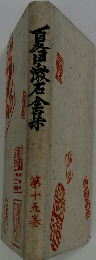 夏目漱石全集
第十五巻